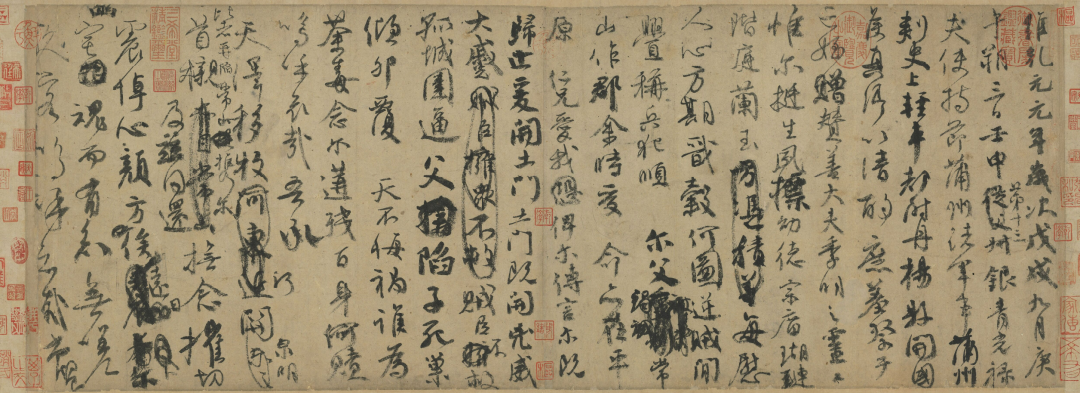 維乾元元年歲次戊戌九月庚
午朔三日壬申第十三從父叔銀青光祿
夫使持節蒲州諸軍事蒲州
刺史上輕車都尉丹楊縣開國
侯真卿以清酌庶羞祭于
亡姪贈贊善大夫季明之靈曰
惟爾挺生夙標幼德宗廟瑚璉
階庭蘭玉方憑積善每慰
人心方期戩穀何圖逆賊閒
釁稱兵犯順爾父竭誠常
山作郡余時受命亦在平
原仁兄愛我俾爾傳言爾既
歸止爰開土門土門既開兇威
大蹙賊臣擁眾不救賊臣不救
孤城圍逼父陷子死巢
傾卵覆天不悔禍誰為
荼毒念爾遘殘百身何贖
嗚呼哀哉吾承
天澤移牧河東近河關泉明
比者再陷常山攜爾
首櫬及茲同還撫念摧切
震悼心顏方俟遠日卜爾
幽宅魂而有知無嗟
久客嗚呼哀哉尚饗